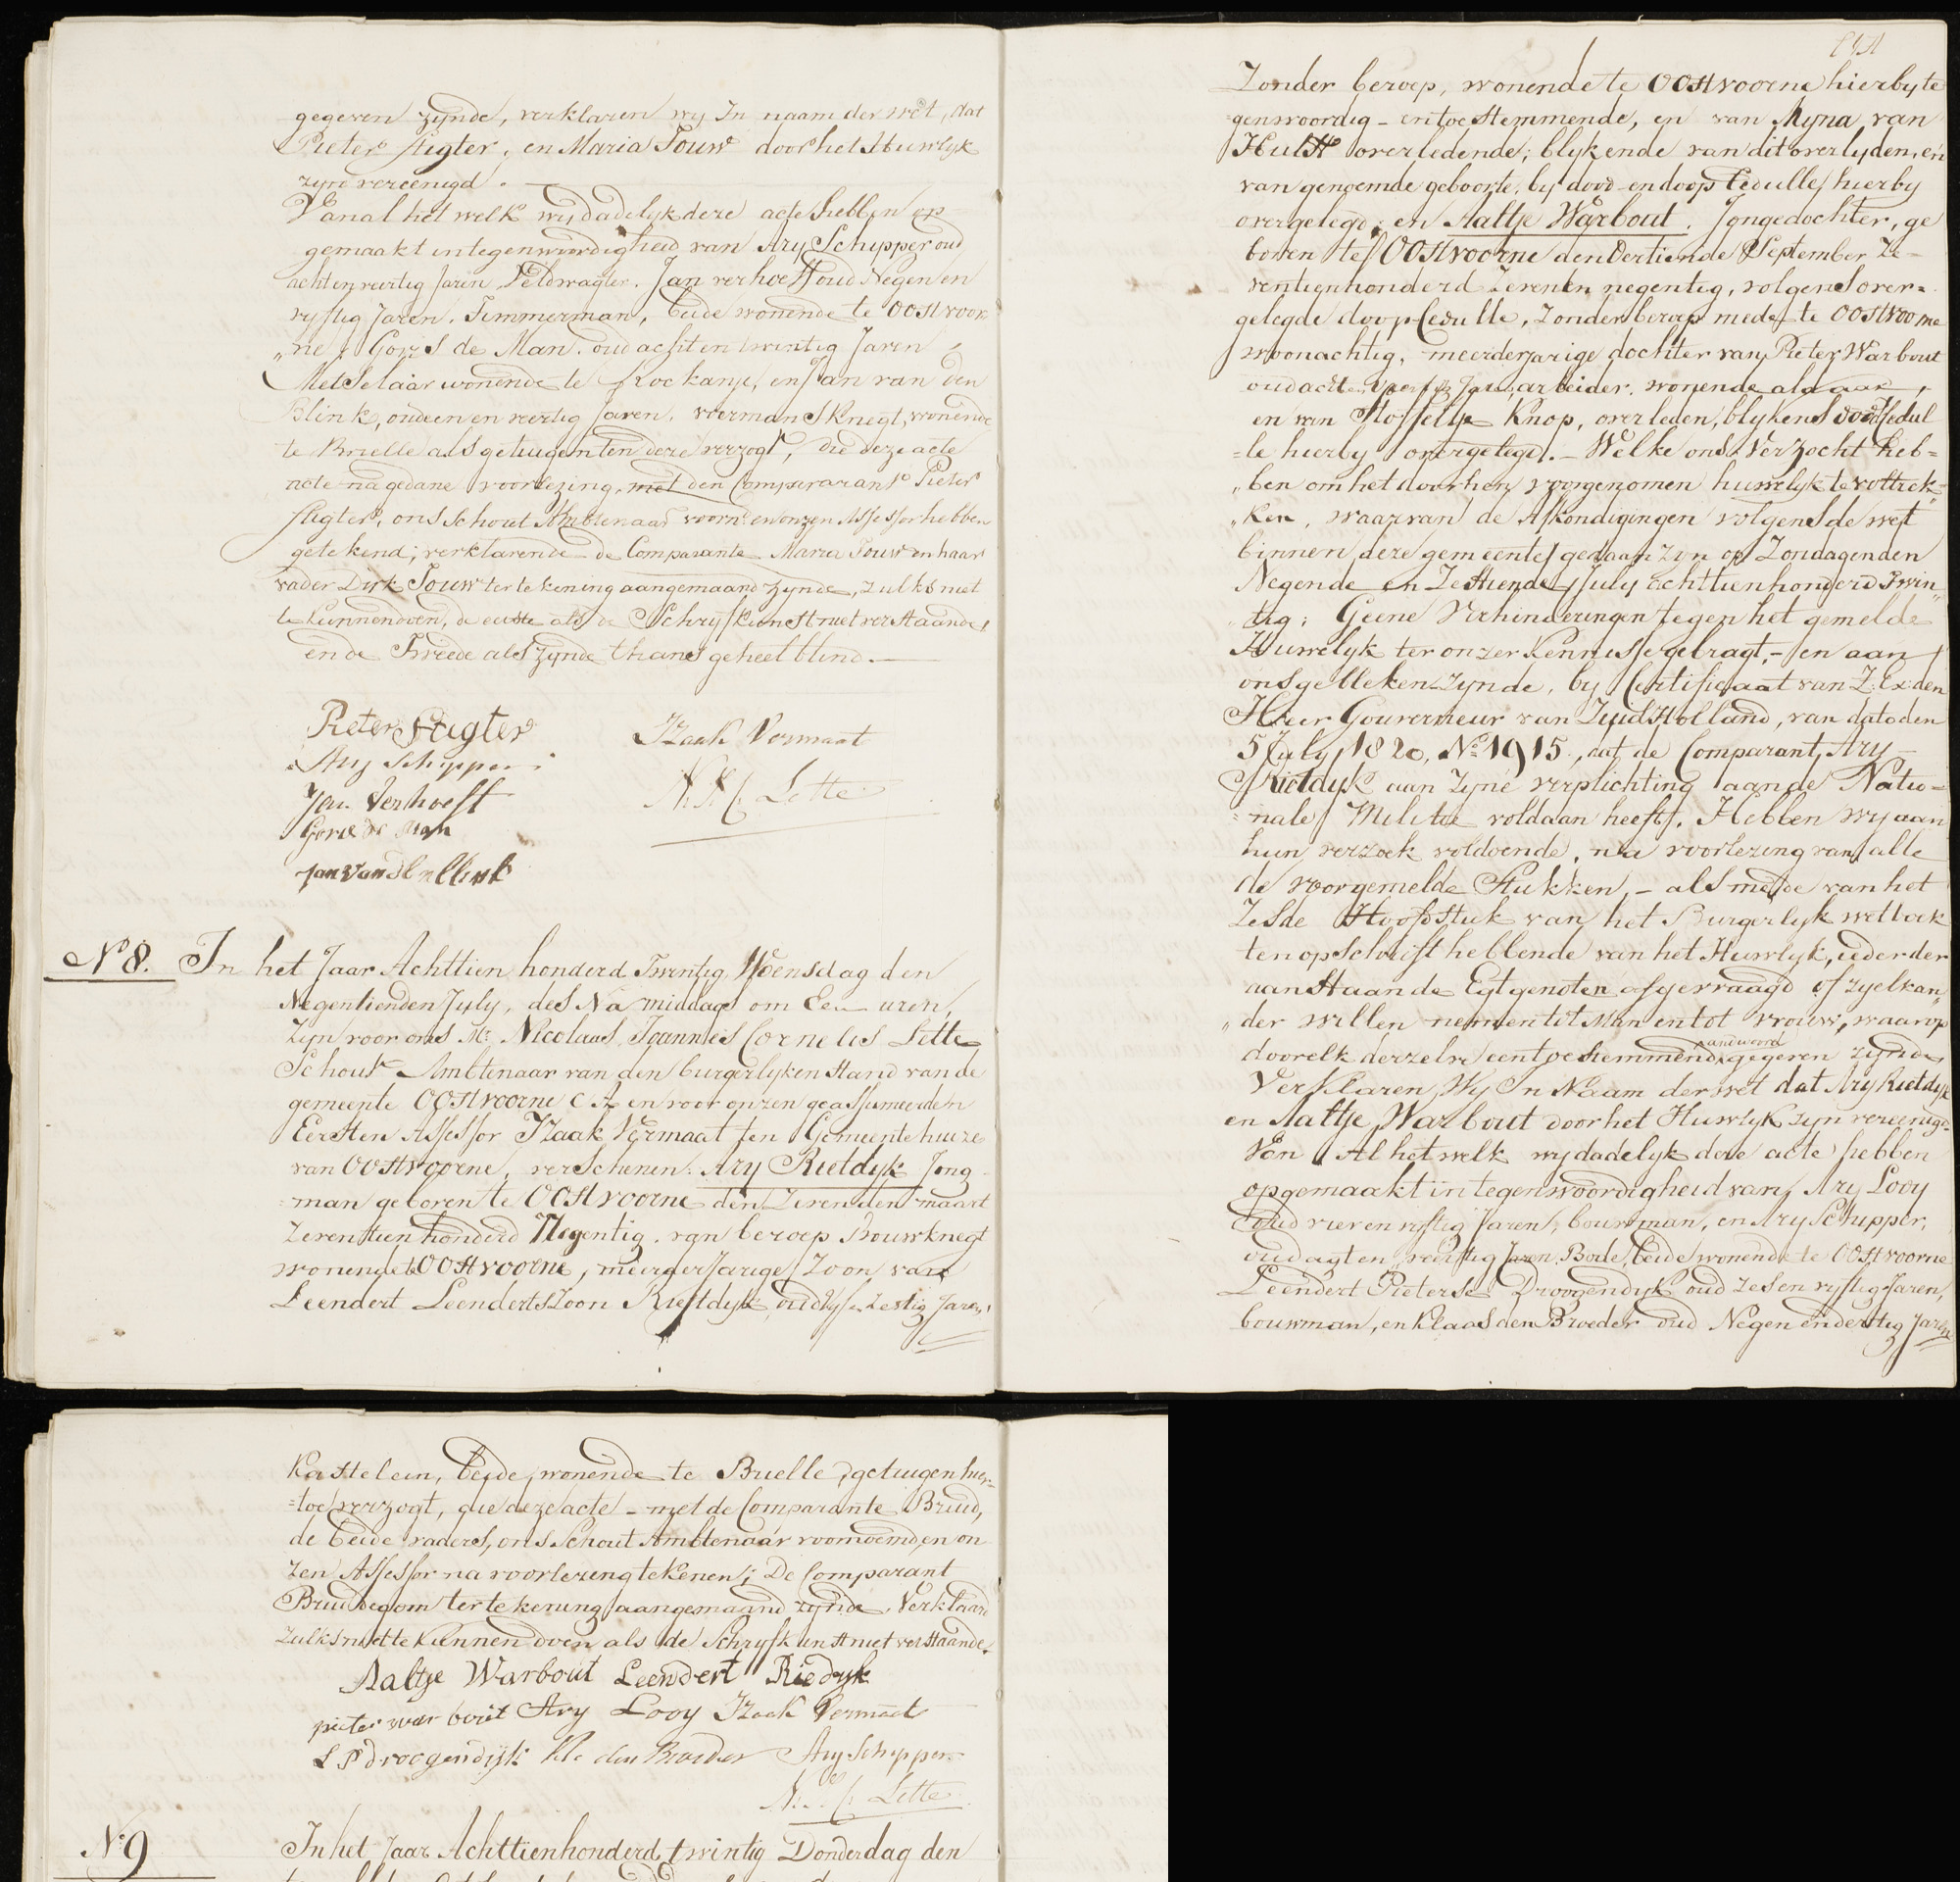 gegeven zynde, verklaren wy In naam der wet, dat
Pieter Stigter, en Maria Touw door het Huwlyk
zyn vereenigd.
Van al het welk wy dadelyk deze acte hebben op
gemaakt in tegenwoordigheid van Ary Schipper oud
acht en veertig Jaren, Veldwagter. Jan verhoeff oud Negen en
vyftig Jaren. Timmerman, beide wonende te Oostvoor
„ne, Goris de Man. oud acht en twintig Jaren
Metselaar wonende te Rockanje, en Jan van den
Blink, oud een en veertig Jaren. voermans Knegt, wonende
te Brielle als getuigen ten deze verzogt, die deze acte
acte na gedane voorlezing, met den Compararant Pieter
Stigter, ons Schout Ambtenaar voornd en onzen Assessor hebben
getekend; verklarende de Comparante Maria Touw en haar
vader Dirk Touw ter tekening aangemaand zynde, zulks niet
te kunnen doen, de eerste als de Schryfkunst niet verstaande,
en de Tweede als zynde thans geheel blind.
Pieter Stigter
Izaak Vermaat
Ary Schipper
Jan Verhoeff
N. J. C. Lette
Goris de Man
Jan van den Blink
No 8. In het Jaar Achttien honderd Twintig, Woensdag den
Negentienden July, des Na middags om Een uren,
Zyn voor ons Mr. Nicolaas Joannes Cornelis Lette
Schout Ambtenaar van den burgerlyken Stand van de
gemeente Oostvoorne C A en voor onzen geassumeerden
Eersten Assessor Izaak Vermaat ten Gemeentehuize
van Oostvoorne, verschenen: Ary Rietdyk Jong
man geboren te Oostvoorne den Zevenden maart
Zeventien honderd Negentig. van beroep Bouwknegt
wonende te Oostvoorne, meerderjarige Zoon van
Leendert Leendertszoon Rietdyk, oud vyf en Zestig Jaren,
Zonder beroep, wonende te Oostvoorne hierby te
genwoordig – en toestemmende, en van Myna van
Hulst overledende; blykende van dit overlyden, en
van genoemde geboorte, by dood- en doop Cedulle, hierby
overgelegd; en Aaltje Warbout. Jongedochter, ge
boren te Oostvoorne den Dertiende September Ze-
ventienhonderd Zeven en negentig, volgens over=
gelegde doop Cedulle, Zonder beroep mede te Oostvoorne
woonachtig, meerderjarige dochter van Pieter Warbout
oud acht en Jaren, arbeider, wonende aldaar,
en van Stoffeltje Knop, overleden, blykens dood Cedul
=le hierby overgelegd. – Welke ons Verzocht heb=
„ben om het door hen voorgenomen huwelyk te voltrek=
„ken, waarvan de Afkondigingen volgens de wet
binnen deze gemeente gedaan zyn op Zondagen den
Negende en Zestiende July Achttienhonderd Twin„
tig; Geene Verhinderingen tegen het gemelde
Huwelyk ter onzer Kennisse gebragt, – en aan
ons gebleken zynde, by Certificaat van Z. Ex. den
Heer Gouverneur van Zuid Holland, van dato den
5 July 1820, No 1915, dat de Comparant, Ary
Rietdyk aan Zyne verplichting aan de Natio=
=nale Militie voldaan heeft, Hebben wy aan
hun verzoek voldoende, na voorlezing van alle
de voorgemelde Stukken, – als mede van het
Zesde Hoofdstuk van het Burgerlyk wetboek
ten opschrift hebbende van het Huwlyk, ieder der
aanstaande Egtgenoten afgevraagd of zy elkan„
„der willen nemen tot Man en tot Vrouw, waarop
andwoord
door elk derzelve een toestemmend gegeven zynde,
Verklaren Wy In Naam der wet dat Ary Rietdyk
en Aaltje Warbout door het Huwlyk zyn vereenigd.
Van Al het welk wy dadelyk deze acte hebben
opgemaakt in tegenwoordigheid van, Ary Looy
oud vier en vyftig Jaren, bouwman, en Ary Schipper,
oud agt en veertig Jaren, Bode, beide wonende te Oostvoorne
Leendert Pieterse Droogendyk oud zes en vyftig Jaren,
bouwman, en Klaas den Broeder oud Negen en dertig Jaren
Kastelein, beide, wonende te Brielle, getuigen hier=
=toe verzogt, die deze acte – met de Comparante Bruid,
de beide vaders, ons Schout Ambtenaar voornoemd, en on
zen Assessor na voorlezing tekenen; De Comparant
Bruidegom ter tekening aangemaand zynde, Verklaard
zulks niet te kunnen doen als de Schryfkunst niet verstaande.
Aaltje Warbout Leendert Riedyk
pieter war bout Ary Looy Izaak Vermaat
L P droogendijk Kls den Broeder Ary Schipper
N. J. C. Lette
No 9 In het Jaar Achttienhonderd, twintig Donderdag den